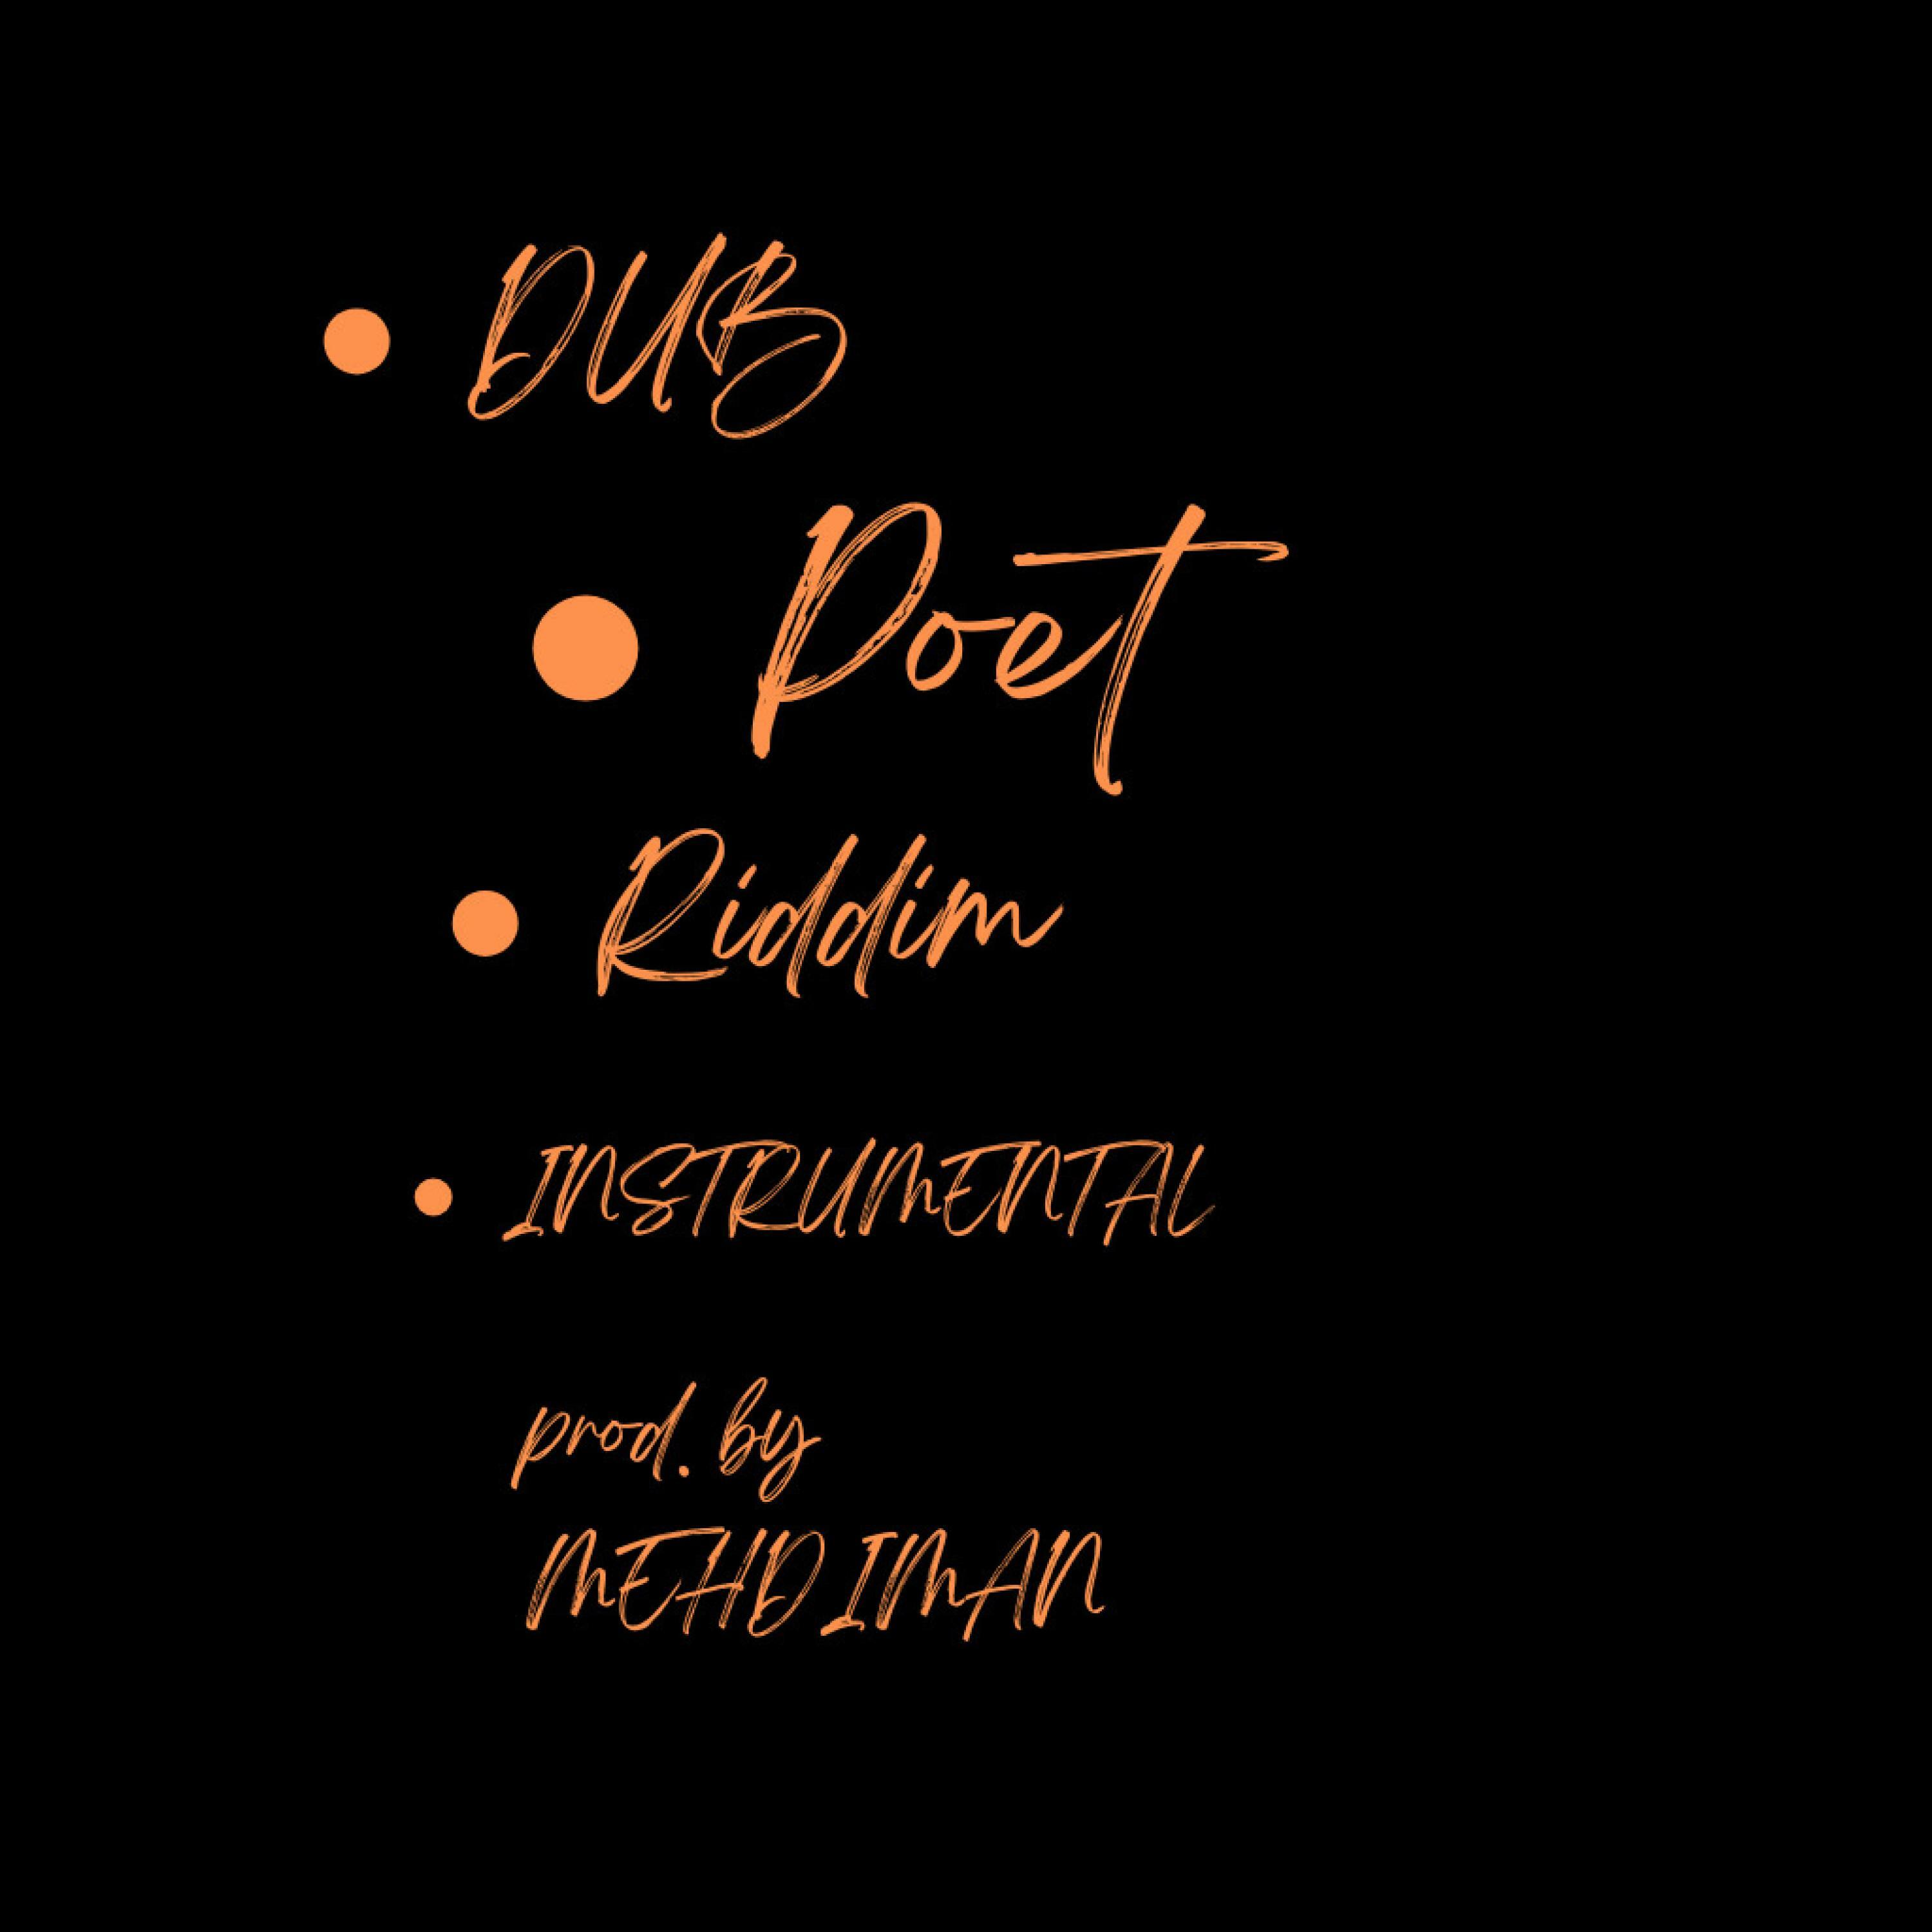 • DUB
• Poet
• Riddim
• INSTRUMENTAL
prod. by
MEHDIMAN